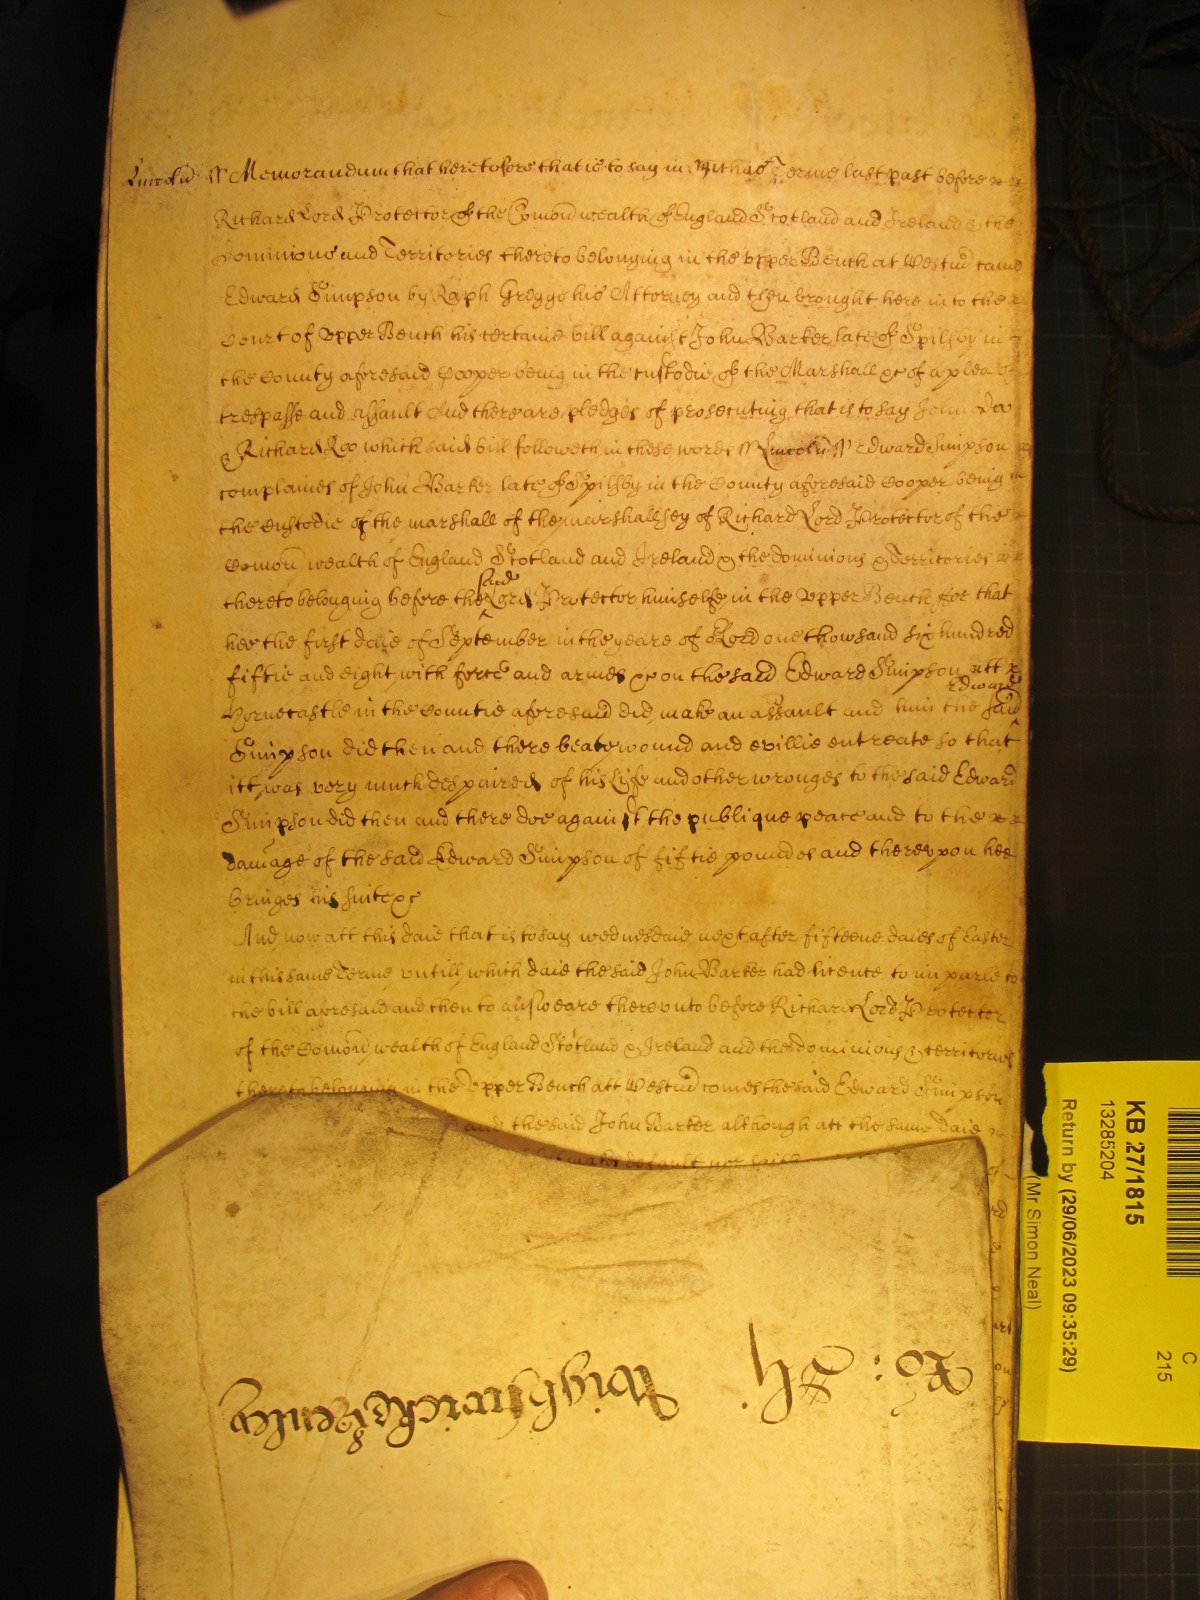 Lincoln ss Memorandum that heretofore that is to say in Michas Terme last past before
Richard Lord Protector of the Comon wealth of England Scotland and Ireland & the
dominions and Territories thereto belonging in the upper Bench at Westm came
Edward Simpson by Raph Gregge his Attorney and then brought here in to the
Court of upper Bench his certaine bill against John Barker late of Spilsby in
the County aforesaid Cooper being in the custodie of the Marshall &c of a plea of
trespasse and assault And there are pledges of prosecuting that is to say John Doo
& Richard Roo which said bill followeth in these words ss Lincoln ss Edward Simpson
complaines of John Barker late of Spilsby in the County aforesaid Cooper being in
the Custodie of the marshall of the marshallsey of Richard Lord Protector of the
Comon wealth of England Scotland and Ireland & the dominions & Territories
thereto belonging before the said Lord Protector himselfe in the Upper Bench for that
hee the first daie of September in the yeare of Lord one thowsand six hundred
fiftie and eight with force and armes &c on the said Edward Simpson att
Hornecastle in the Countie aforesaid did make an assault and him the said Edward
Simpson did then and there beate wound and evillie entreate so that
itt was very much despaired of his Lyfe and other wronges to the said Edward
Simpson did then and there doe against the publique peace and to the
damage of the said Edward Simpson of fiftie poundes and thereupon hee
bringes his suite &c
And now att this daie that is to say wednesdaie next after fifteene daies of Easter
in this same Terme untill which daie the said John Barker had licence to imparle to
the bill aforesaid and then to answeare thereunto before Richard Lord Protector
of the Comon wealth of England Scotland & Ireland and the dominions & territories
thereto belonging in the Upper Bench att Westm comes the said Edward Simpson
and the said John Barker although att the same daie
default nor saith
Ro:
Wightwicke & Henley
KB 27/1815
13285204
Return by (29/06/2023 09:35:29)
(Mr Simon Neal)
C
215